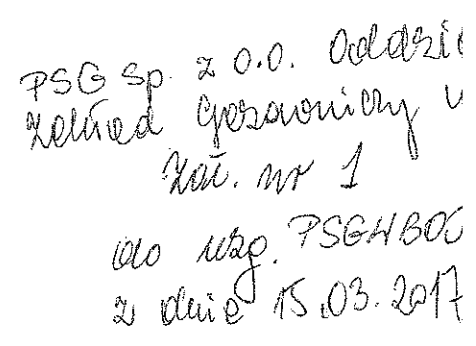 PSG Sp. z o.o. Oddzi
Zakład Gazowniczy w
Zał. nr 1
do uzg. PSGWBOU
z dnia 15.03.2017